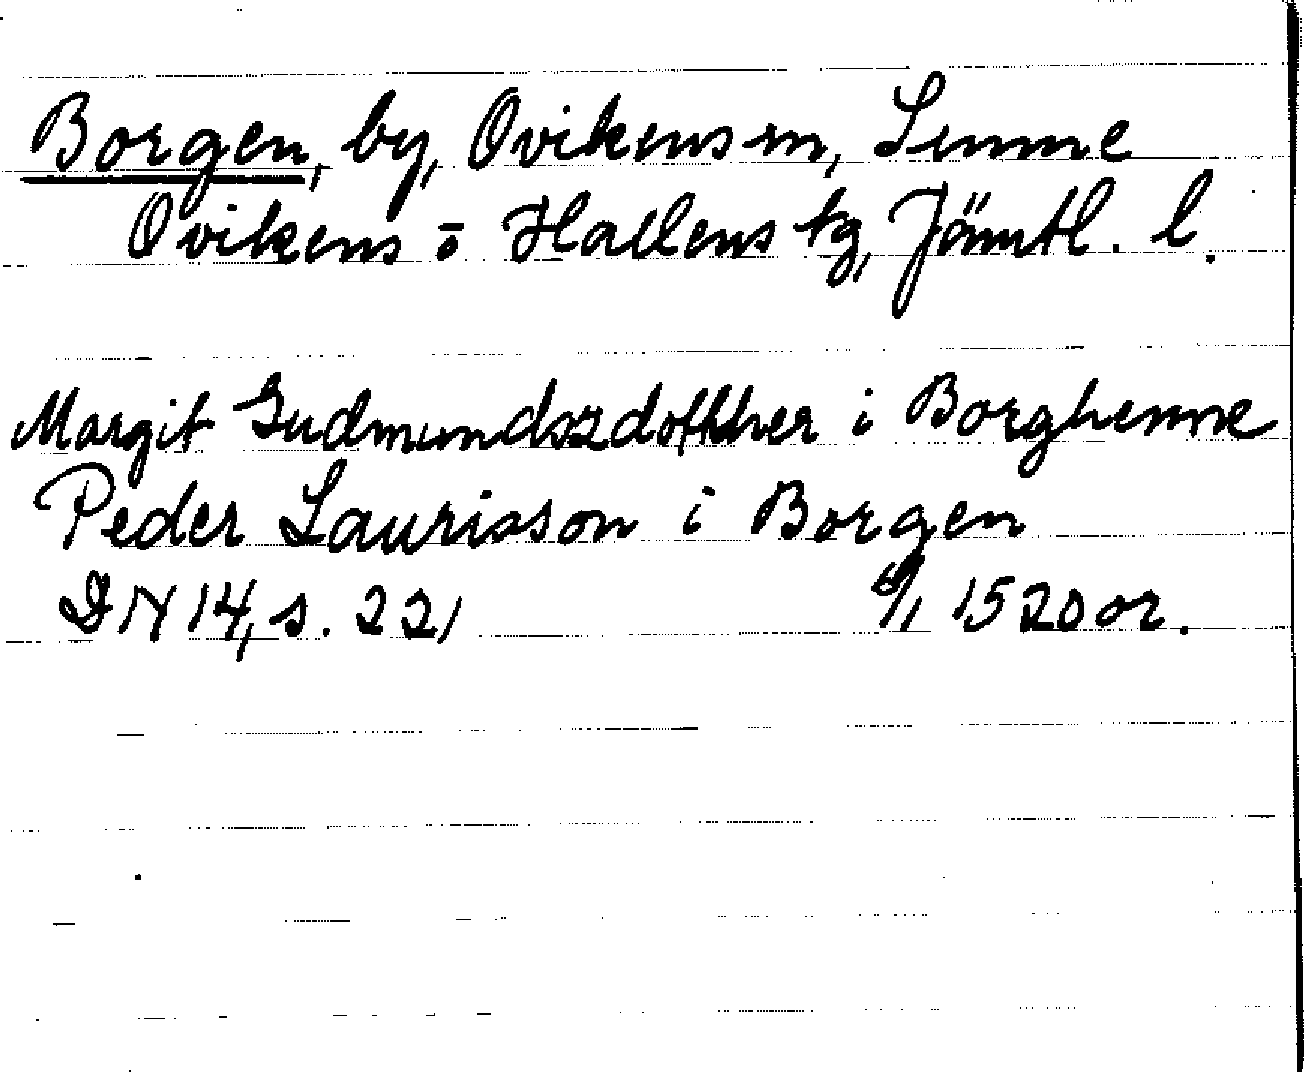 Borgen, by, Ovikens sn, Sunne
Ovikens o Hallens tg, Jämtl. l.
Margit Gudmundszdotther i Borghenne
Peder Laurisson i Borgen
DN 14, s. 221 6/1 1520 or.